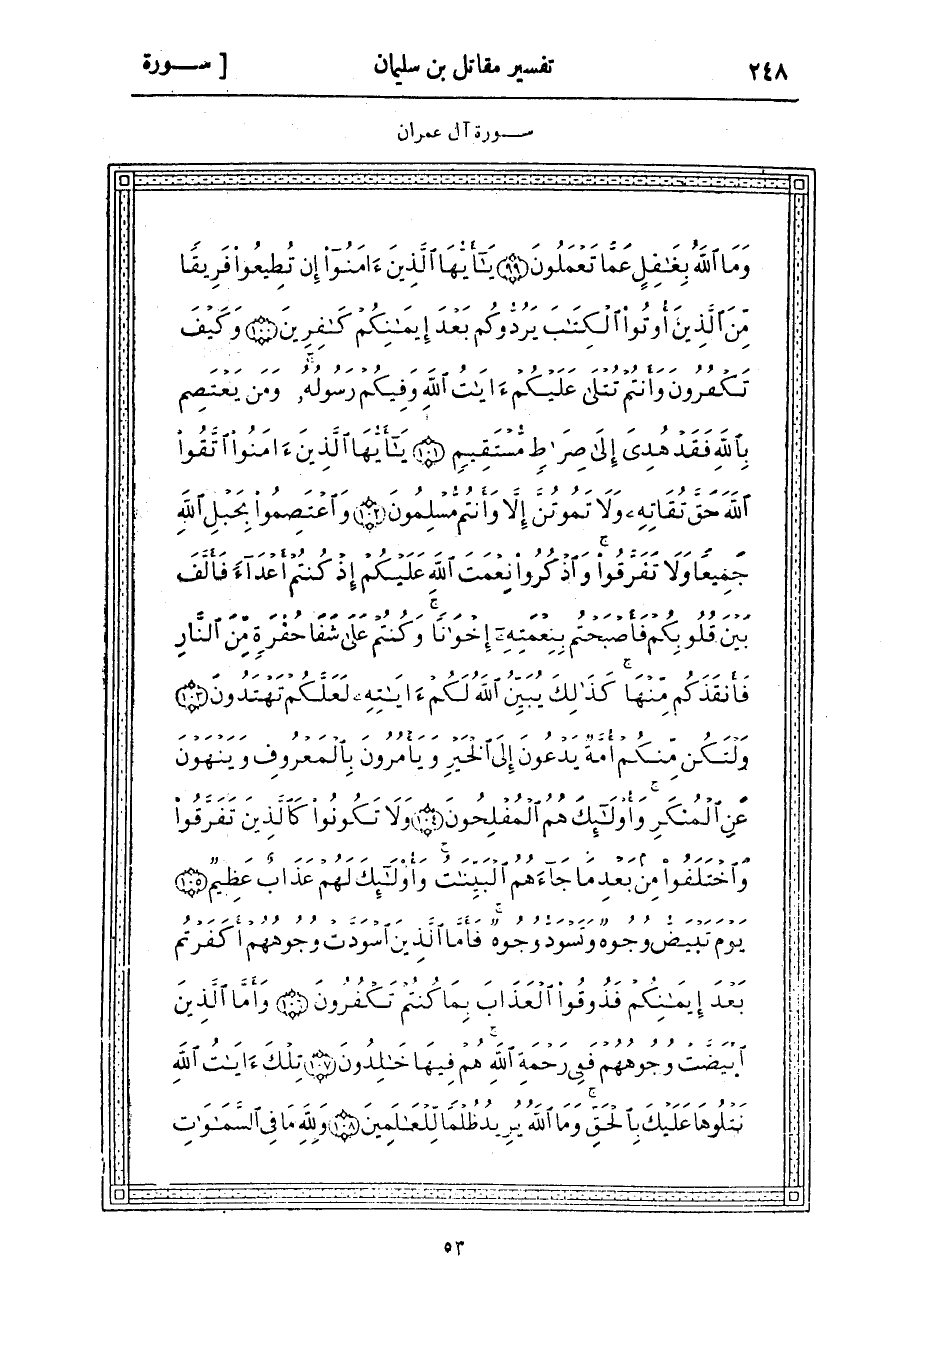 ٢٤٨ تفسير مقاتل بن سليمان [ ســورة
ســورة آل عمران
وَمَا ٱللَّهُ بِغَٰفِلٍ عَمَّا تَعْمَلُونَ ٩٩ يَٰٓأَيُّهَا ٱلَّذِينَ ءَامَنُوٓا۟ إِن تُطِيعُوا۟ فَرِيقًا
مِّنَ ٱلَّذِينَ أُوتُوا۟ ٱلْكِتَٰبَ يَرُدُّوكُم بَعْدَ إِيمَٰنِكُمْ كَٰفِرِينَ ١٠٠ وَكَيْفَ
تَكْفُرُونَ وَأَنتُمْ تُتْلَىٰ عَلَيْكُمْ ءَايَٰتُ ٱللَّهِ وَفِيكُمْ رَسُولُهُۥ ۗ وَمَن يَعْتَصِم
بِٱللَّهِ فَقَدْ هُدِىَ إِلَىٰ صِرَٰطٍ مُّسْتَقِيمٍ ١٠١ يَٰٓأَيُّهَا ٱلَّذِينَ ءَامَنُوا۟ ٱتَّقُوا۟
ٱللَّهَ حَقَّ تُقَاتِهِۦ وَلَا تَمُوتُنَّ إِلَّا وَأَنتُم مُّسْلِمُونَ ١٠٢ وَٱعْتَصِمُوا۟ بِحَبْلِ ٱللَّهِ
جَمِيعًا وَلَا تَفَرَّقُوا۟ ۚ وَٱذْكُرُوا۟ نِعْمَتَ ٱللَّهِ عَلَيْكُمْ إِذْ كُنتُمْ أَعْدَآءً فَأَلَّفَ
بَيْنَ قُلُوبِكُمْ فَأَصْبَحْتُم بِنِعْمَتِهِۦٓ إِخْوَٰنًا ۚ وَكُنتُمْ عَلَىٰ شَفَا حُفْرَةٍ مِّنَ ٱلنَّارِ
فَأَنقَذَكُم مِّنْهَا ۗ كَذَٰلِكَ يُبَيِّنُ ٱللَّهُ لَكُمْ ءَايَٰتِهِۦ لَعَلَّكُمْ تَهْتَدُونَ ١٠٣
وَلْتَكُن مِّنكُمْ أُمَّةٌ يَدْعُونَ إِلَى ٱلْخَيْرِ وَيَأْمُرُونَ بِٱلْمَعْرُوفِ وَيَنْهَوْنَ
عَنِ ٱلْمُنكَرِ ۚ وَأُو۟لَٰٓئِكَ هُمُ ٱلْمُفْلِحُونَ ١٠٤ وَلَا تَكُونُوا۟ كَٱلَّذِينَ تَفَرَّقُوا۟
وَٱخْتَلَفُوا۟ مِنۢ بَعْدِ مَا جَآءَهُمُ ٱلْبَيِّنَٰتُ ۚ وَأُو۟لَٰٓئِكَ لَهُمْ عَذَابٌ عَظِيمٌ ١٠٥
يَوْمَ تَبْيَضُّ وُجُوهٌ وَتَسْوَدُّ وُجُوهٌ ۚ فَأَمَّا ٱلَّذِينَ ٱسْوَدَّتْ وُجُوهُهُمْ أَكَفَرْتُم
بَعْدَ إِيمَٰنِكُمْ فَذُوقُوا۟ ٱلْعَذَابَ بِمَا كُنتُمْ تَكْفُرُونَ ١٠٦ وَأَمَّا ٱلَّذِينَ
ٱبْيَضَّتْ وُجُوهُهُمْ فَفِى رَحْمَةِ ٱللَّهِ ۚ هُمْ فِيهَا خَٰلِدُونَ ١٠٧ تِلْكَ ءَايَٰتُ ٱللَّهِ
نَتْلُوهَا عَلَيْكَ بِٱلْحَقِّ ۗ وَمَا ٱللَّهُ يُرِيدُ ظُلْمًا لِّلْعَٰلَمِينَ ١٠٨ وَلِلَّهِ مَا فِى ٱلسَّمَٰوَٰتِ
٥٣